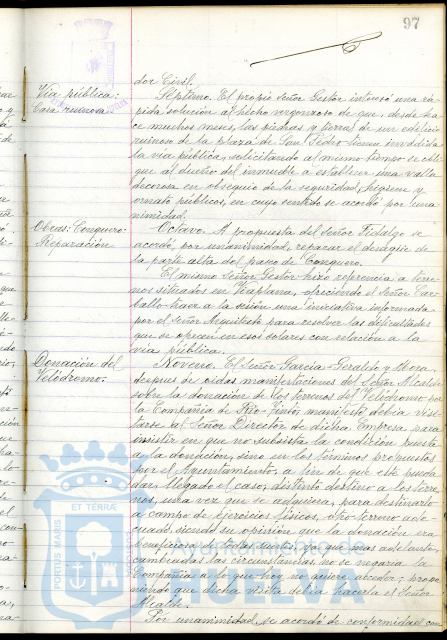 97
Via pública:
Casa ruinosa
dor Civil.
Séptimo. El propio Señor Gestor interesó una rá-
pida solución al hecho vergonzoso de que, desde ha-
ce muchos meses, las piedras y tierras de un edificio
ruinoso de la plaza de San Pedro tienen invadida
la vía pública, solicitando al mismo tiempo se obli-
gue al dueño del inmueble a establecer una valla
decorosa en obsequio de la seguridad, higiene y
ornato públicos, en cuyo sentido se acordó por una-
nimidad.
Obras: Conquero:
Reparación
Octavo. A propuesta del Señor Fidalgo se
acordó, por unanimidad, reparar el desagüe de
la parte alta del paseo de Conquero.
El mismo Señor Gestor hizo referencia a terre-
nos situados en Viaplana, ofreciendo el Señor Car-
ballo traer a la sesión una iniciativa informada
por el Señor Arquitecto para resolver las dificultades
que se ofrecen en esos solares con relación a la
vía pública.
Donación del
Velódromo.
Noveno. El Señor García-Geraldo y Mora,
después de oídas manifestaciones del Señor Alcalde
sobre la donación de los terrenos del Velódromo por
la Compañía de Rio-Tinto, manifestó debía visi-
tarse al Señor Director de dicha Empresa para
insistir en que no subsista la condición puesta
a la donación, sino en los términos propuestos
por el Ayuntamiento, a fin de que éste pueda
dar, llegado el caso, distinto destino a los terre-
nos, una vez que se adquiera, para destinarlo
a campo de ejercicios físicos, otro terreno ade-
cuado, siendo su opinión que la donación era
beneficiosa a todas luces, ya que mas adelante,
cambiadas las circunstancias, no se negaría la
Compañía a lo que hoy no quiere acceder; propo-
niendo que dicha visita debía hacerla el Señor
Alcalde.
Por unanimidad, se acordó de conformidad con
PORTUS MARIS
ET TERRAE
Ayuntamiento de